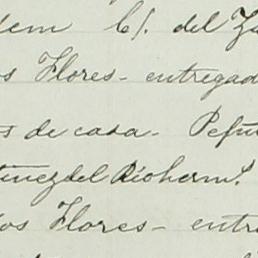 dem C/. del Za
os Flores - entregad
s de casa - Pefu
tinez del Rioherm.º
os Flores - entr